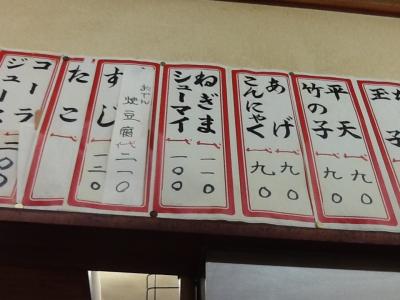 玉
平天 九〇
竹の子 九〇
あげ 九〇
こんにゃく 九〇
ねぎま 一一〇
シューマイ 一〇〇
おでん
焼豆腐 代二一〇
すじ
たこ
コーラ
ジュース 二〇〇